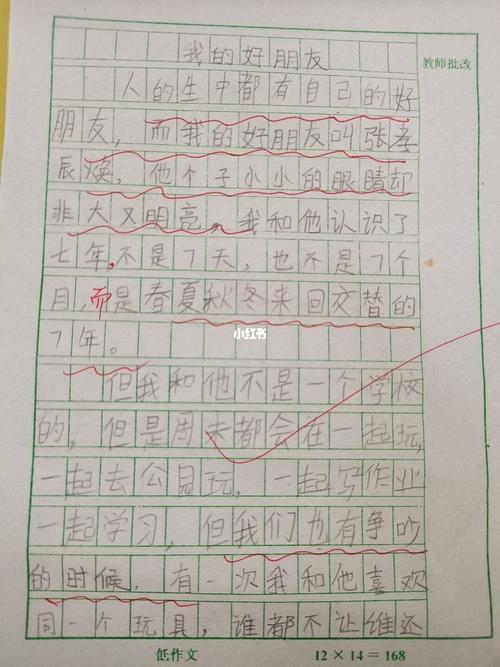 我的好朋友
教师批改
人的生中都有自己的好
朋友，而我的好朋友叫张孝
辰焕，他个子小小的眼睛却
非大又明亮，我和他认识了
七年，不是7天，也不是7个
月，而是春夏秋冬来回交替的
7年。
小红书
但我和他不是一个学校
的，但是周末都会在一起玩，
一起去公园玩，一起写作业
一起学习，但我们也有争吵
的时候，有一次我和他喜欢
同一个玩具，谁都不让谁还
低作文
12×14=168